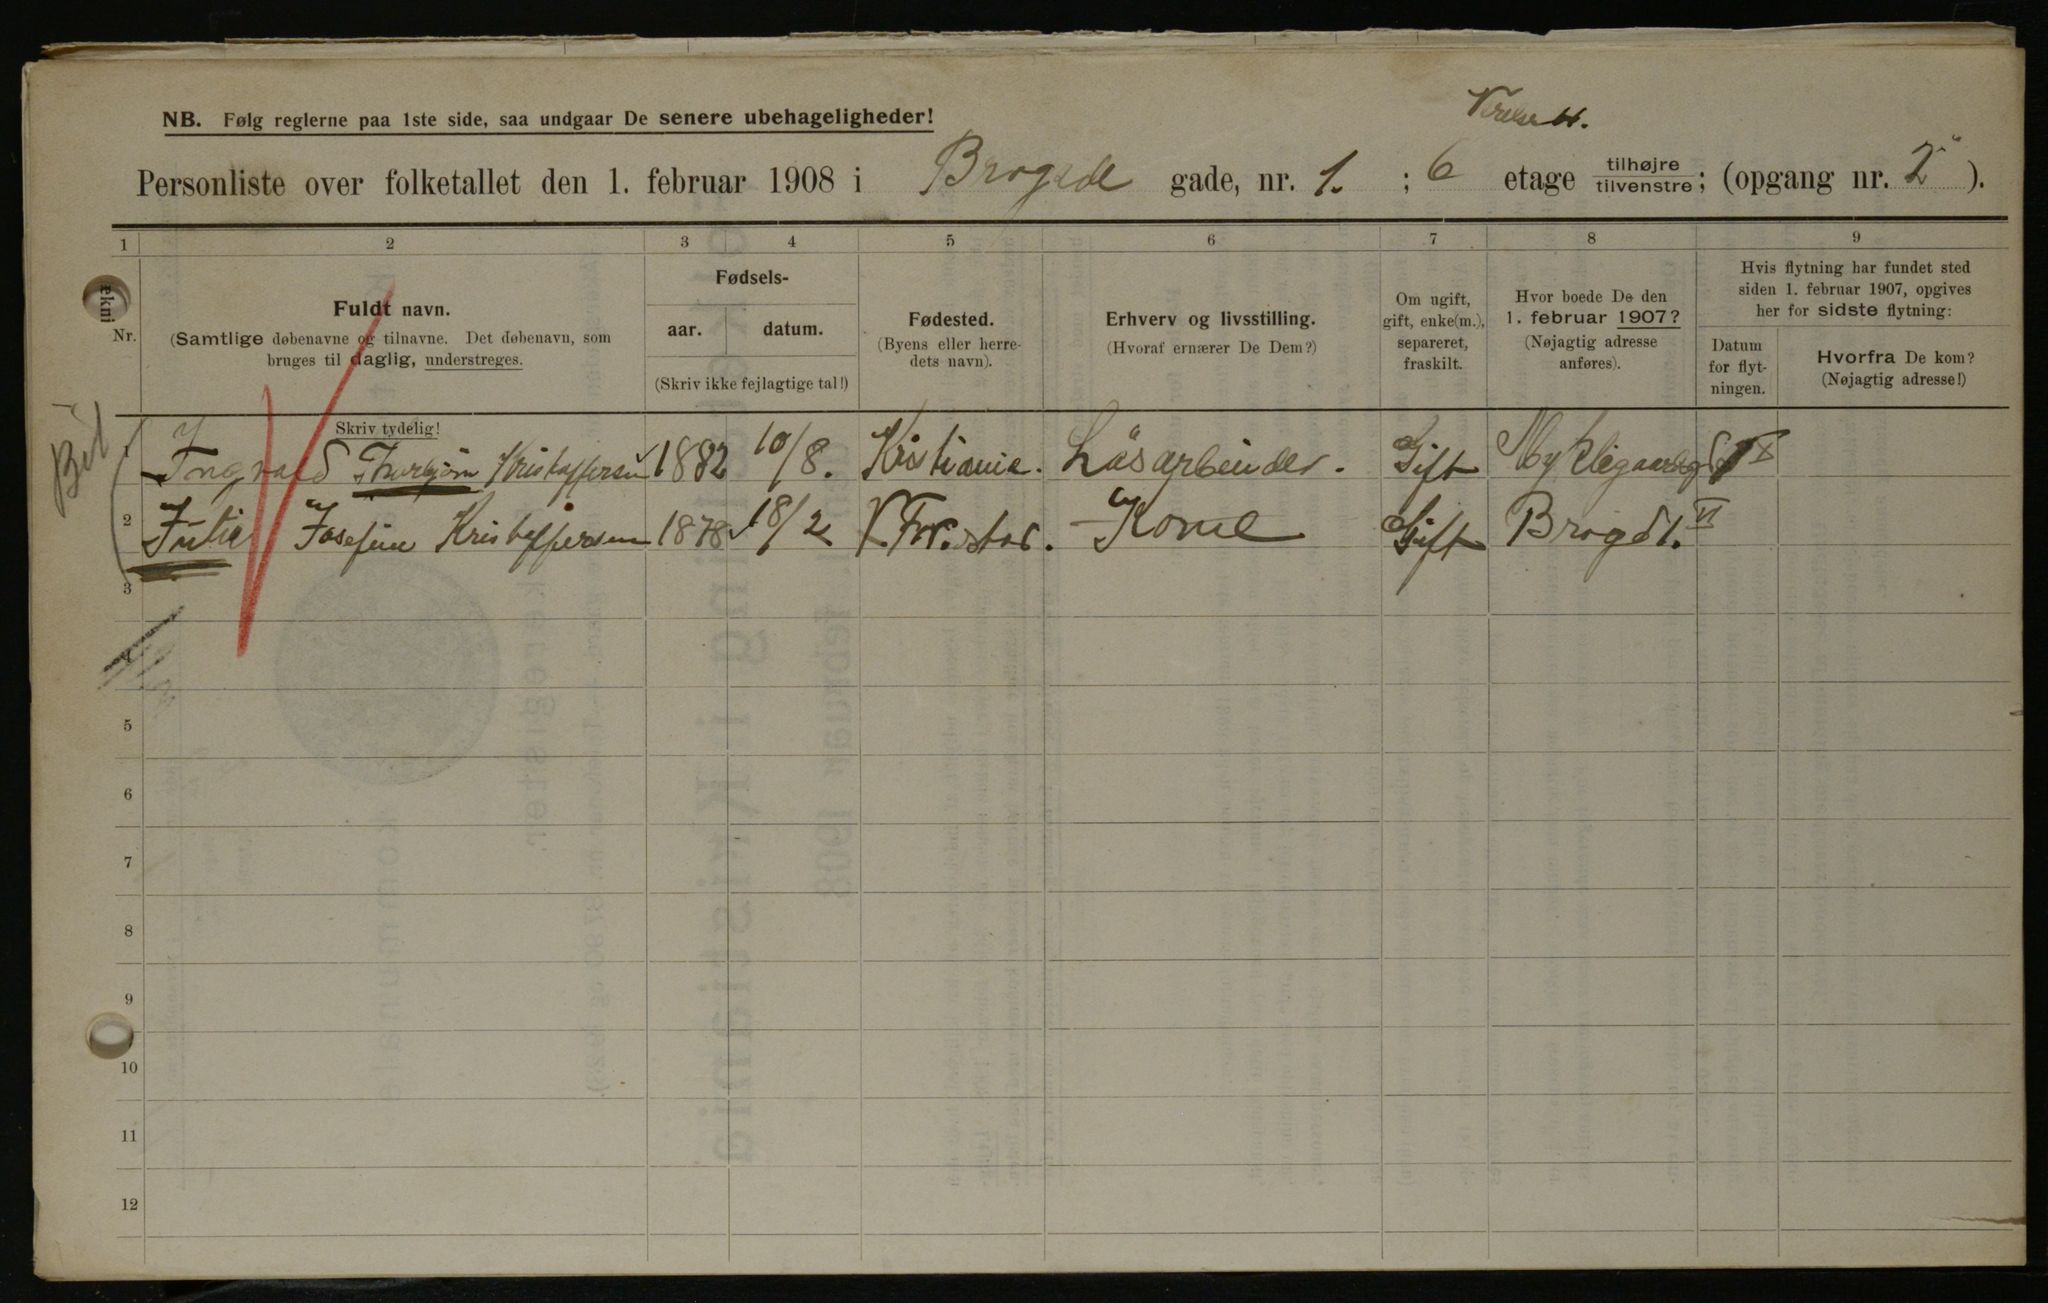 Værelse 11.
NB. Følg reglerne paa 1ste side, saa undgaar De senere ubehageligheder!
Personliste over folketallet den 1. februar 1908 i Brogade gade, nr. 1. ; 6 etage tilhøjre tilvenstre; (opgang nr. 2 ).
1 2 3 4 5 6 7 8 9
Nr.
Fuldt navn.
(Samtlige døbenavne og tilnavne. Det døbenavn, som
bruges til daglig, understreges.
Skriv tydelig!
Fødsels-
aar. datum.
(Skriv ikke fejlagtige tal!)
Fødested.
(Byens eller herre-
dets navn).
Erhverv og livsstilling.
(Hvoraf ernærer De Dem?)
Om ugift,
gift, enke(m.),
separeret,
fraskilt.
Hvor boede De den
1. februar 1907?
(Nøjagtig adresse
anføres).
Hvis flytning har fundet sted
siden 1. februar 1907, opgives
her for sidste flytning:
Datum
for flyt-
ningen.
Hvorfra De kom?
(Nøjagtig adresse!)
1 Ingvald Thorbjørn Kristoffersen 1882 10/8. Kristiania. Løsarbeider. Gift
2 Julie Josefine Kristoffersen 1878 18/2 Kone Gift Brogd 1. VI
3
4
5
6
7
8
9
10
11
12